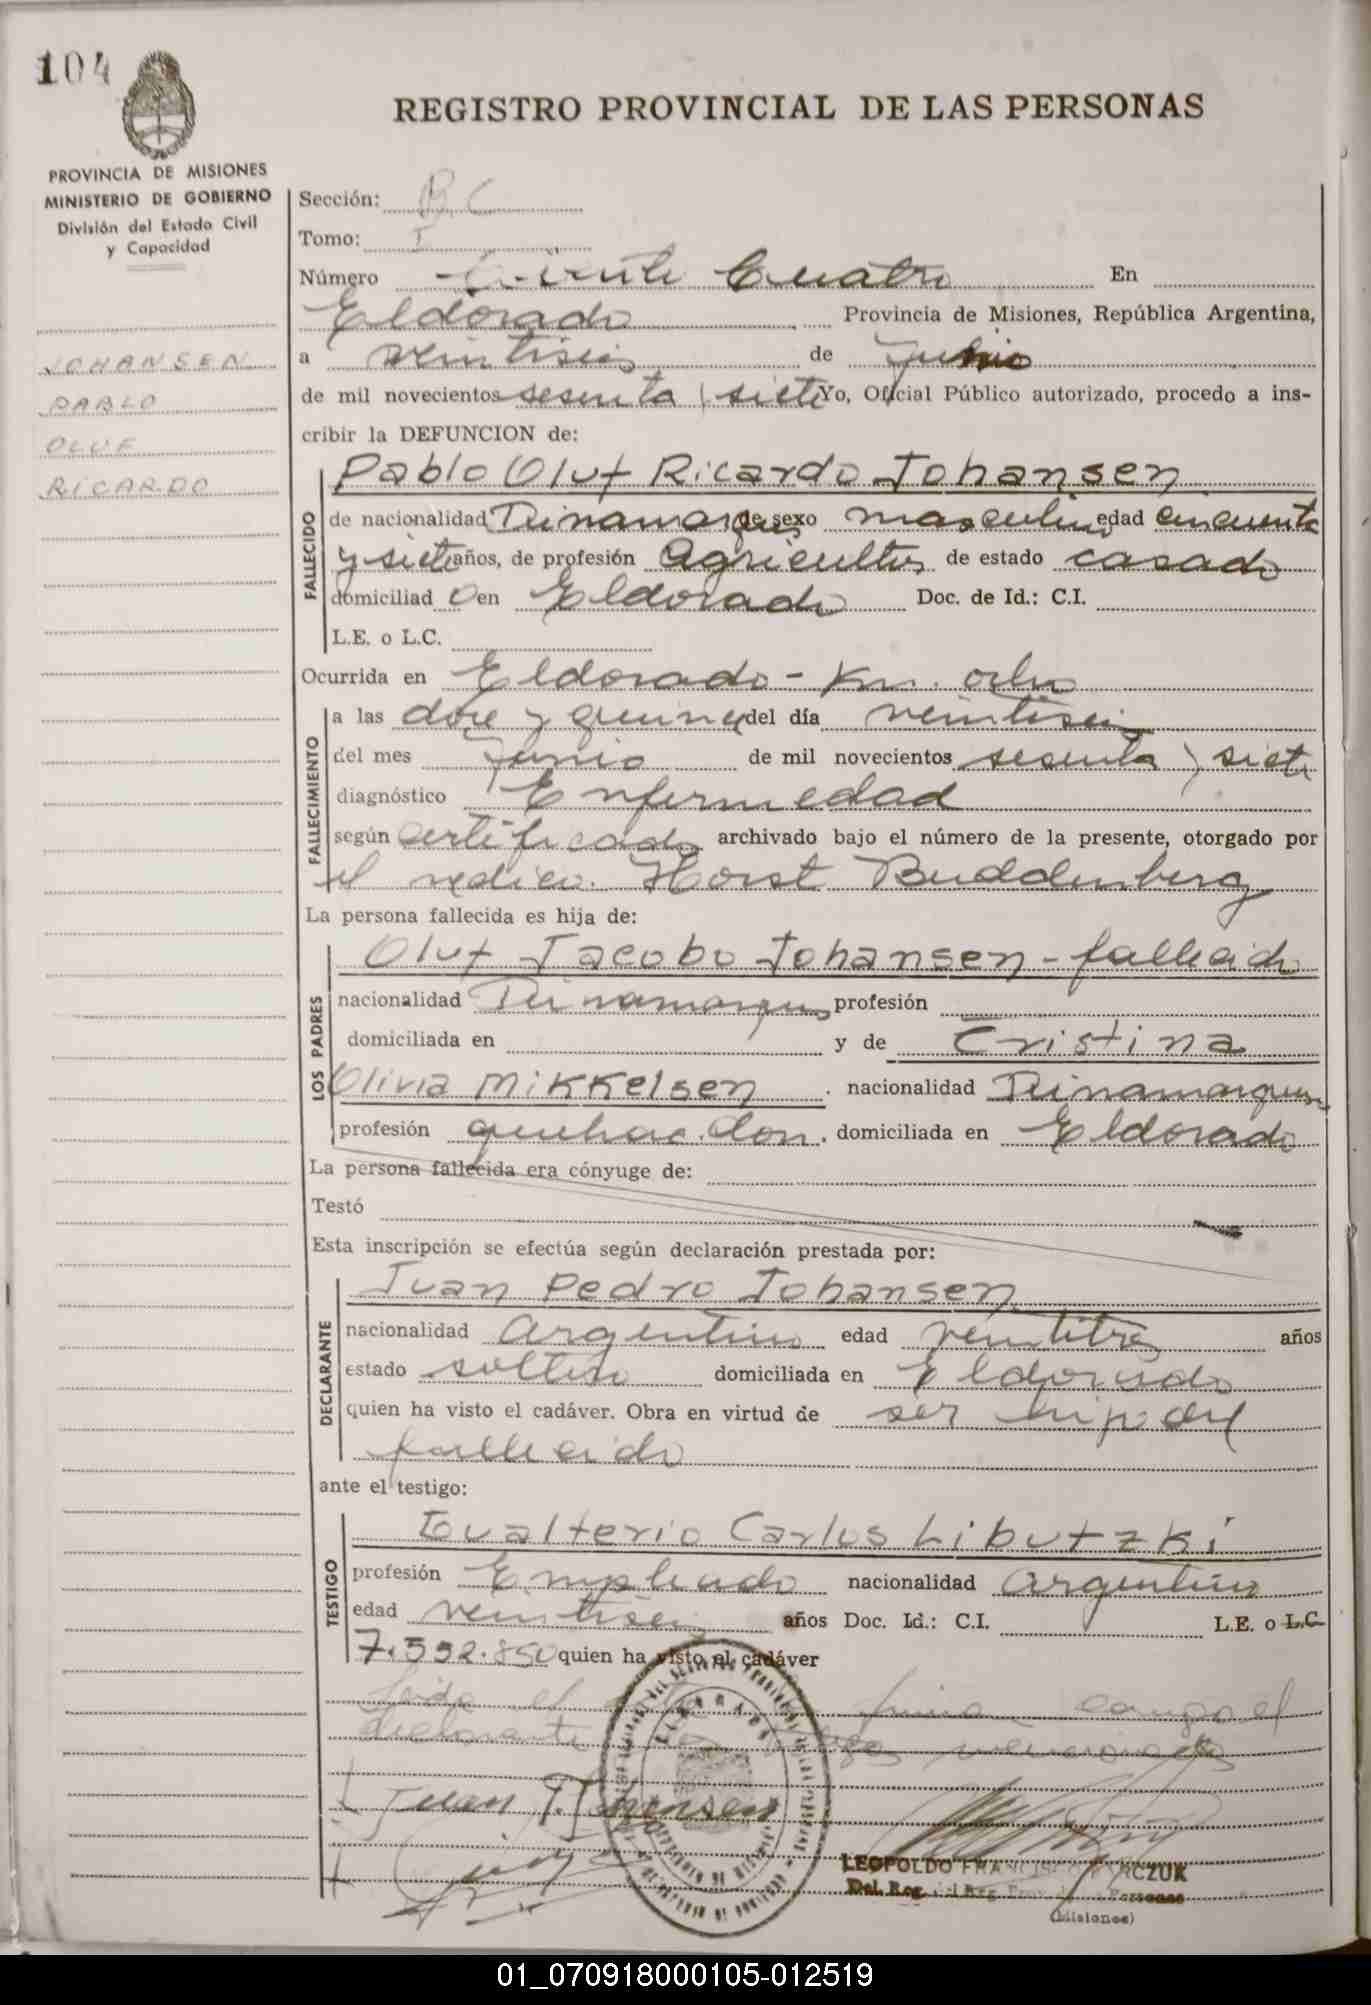 104
REGISTRO PROVINCIAL DE LAS PERSONAS
PROVINCIA DE MISIONES
MINISTERIO DE GOBIERNO
División del Estado Civil
y Capacidad
JOHANSEN
PABLO
OLUF
RICARDO
Sección:
Tomo: I
Número Ciento Cuatro En
Eldorado Provincia de Misiones, República Argentina,
a veintiseis de Junio
de mil novecientos sesenta y siete Yo, Oficial Público autorizado, procedo a ins-
cribir la DEFUNCION de:
FALLECIDO
Pablo Oluf Ricardo Johansen
de nacionalidad Dinamarques de sexo masculino edad cincuenta
y siete años, de profesión Agricultor de estado casado
domiciliad o en Eldorado Doc. de Id.: C.I.
L.E. o L.C.
Ocurrida en Eldorado - Km. ocho
FALLECIMIENTO
a las doce y quince del día veintiseis
del mes Junio de mil novecientos sesenta y siete
diagnóstico Enfermedad
según certificado archivado bajo el número de la presente, otorgado por
el medico. Horst Buddenberg
La persona fallecida es hija de:
LOS PADRES
Oluf Jacobo Johansen - fallecido
nacionalidad Dinamarques profesión
domiciliada en y de Cristina
Olivia Mikkelsen . nacionalidad Dinamarquesa
profesión quehac. dom. domiciliada en Eldorado
La persona fallecida era cónyuge de:
Testó
Esta inscripción se efectúa según declaración prestada por:
DECLARANTE
Juan Pedro Johansen
nacionalidad Argentino edad veintitres años
estado soltero domiciliada en Eldorado
quien ha visto el cadáver. Obra en virtud de ser hijo del
fallecido
ante el testigo:
TESTIGO
Gualterio Carlos Libutzki
profesión Empleado nacionalidad Argentino
edad veintiseis años Doc. Id.: C.I. L.E. o L.C.
7.592.850 quien ha visto el cadáver
Leida el acta firman conmigo el
declarante testigo mencionados
Juan P. Johansen
ELDORADO
LEOPOLDO FRANCISCO
Del. Reg. del Reg. Prov. de las Personas
(Misiones)
01_070918000105-012519